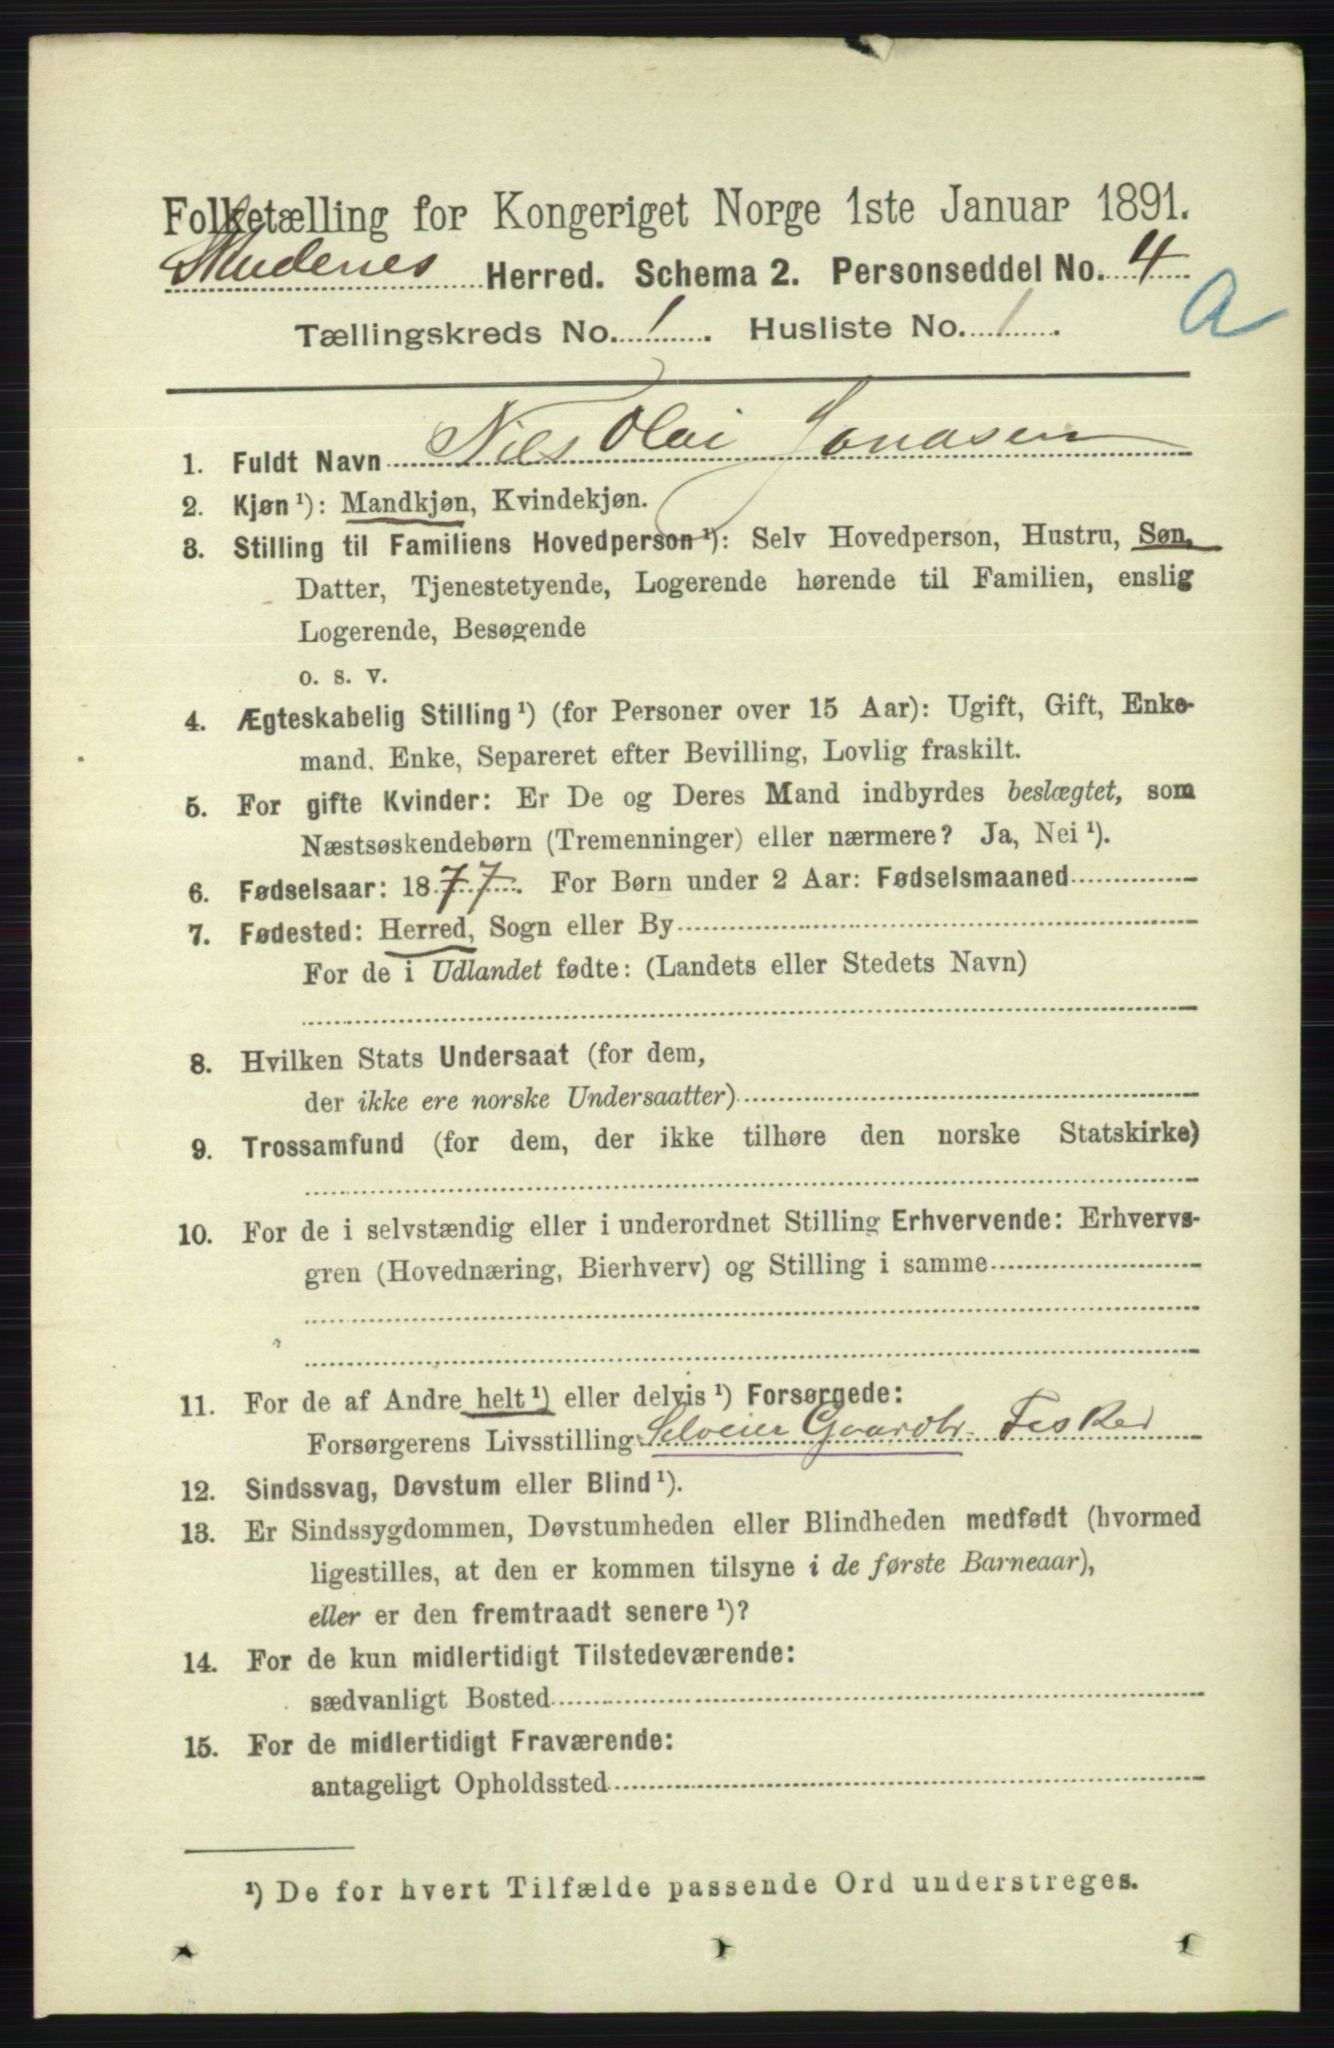 Folketælling for Kongeriget Norge 1ste Januar 1891.
Skudenes Herred. Schema 2. Personseddel No. 4
A
Tællingskreds No. 1. Husliste No. 1.
1. Fuldt Navn Nils Olai Jonasen
2. Kjøn¹): Mandkjøn, Kvindekjøn.
3. Stilling til Familiens Hovedperson¹): Selv Hovedperson, Hustru, Søn,
Datter, Tjenestetyende, Logerende hørende til Familien, enslig
Logerende, Besøgende
o. s. v.
4. Ægteskabelig Stilling¹) (for Personer over 15 Aar): Ugift, Gift, Enke-
mand, Enke, Separeret efter Bevilling, Lovlig fraskilt.
5. For gifte Kvinder: Er De og Deres Mand indbyrdes beslægtet, som
Næstsøskendebørn (Tremenninger) eller nærmere? Ja, Nei¹).
6. Fødselsaar: 1877. For Børn under 2 Aar: Fødselsmaaned
7. Fødested: Herred, Sogn eller By
For de i Udlandet fødte: (Landets eller Stedets Navn)
8. Hvilken Stats Undersaat (for dem,
der ikke ere norske Undersaatter)
9. Trossamfund (for dem, der ikke tilhøre den norske Statskirke)
10. For de i selvstændig eller i underordnet Stilling Erhvervende: Erhvervs-
gren (Hovednæring, Bierhverv) og Stilling i samme
11. For de af Andre helt¹) eller delvis¹) Forsørgede:
Forsørgerens Livsstilling Selveier Gaardbr. Fisker
12. Sindssvag, Døvstum eller Blind¹).
13. Er Sindssygdommen, Døvstumheden eller Blindheden medfødt (hvormed
ligestilles, at den er kommen tilsyne i de første Barneaar),
eller er den fremtraadt senere¹)?
14. For de kun midlertidigt Tilstedeværende:
sædvanligt Bosted
15. For de midlertidigt Fraværende:
antageligt Opholdssted
¹) De for hvert Tilfælde passende Ord understreges.